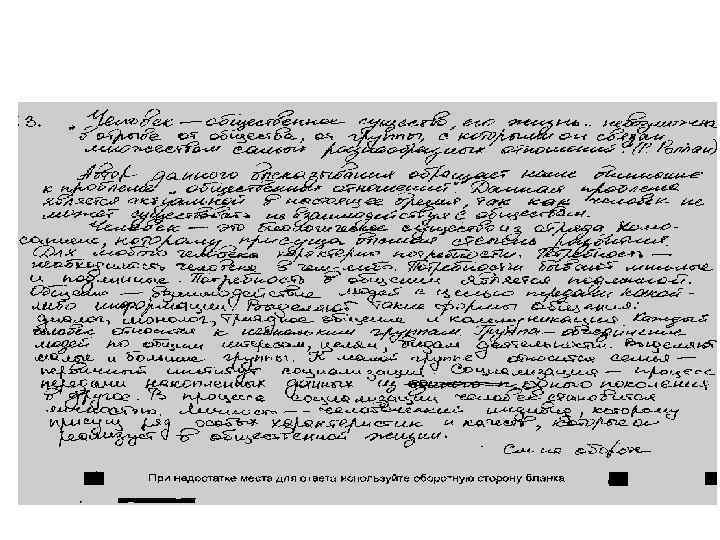 3. „Человек — общественное существо, его жизнь невозможна
в отрыве от общества, от группы, с которыми он связан
множеством самых разнообразных отношений". (Р.
Автор данного высказывания обращает наше внимание
к проблеме „общественных отношений". Данная проблема
является актуальной в настоящее время, так как человек не
может существовать не взаимодействуя с обществом.
Человек — это биологическое существо из отряда Хомо-
сапиенс, которому присуща высшая степень развития.
Для любого человека характерны потребности. Потребность —
необходимость человека в чем-либо. Потребности бывают мнимые
и подлинные. Потребность в общении является подлинной.
Общение — взаимодействие людей с целью передачи какой-
либо информации. Выделяют такие формы общения:
диалог, монолог, общение и коммуникация. Каждый
человек относится к нескольким группам. Группа — объединение
людей по общим интересам, целям, видам деятельности. Выделяют
малые и большие группы. К малой группе относится семья —
первичный институт социализации. Социализация — процесс
передачи накопленных данных из одного поколения
в другое. В процессе социализации человек становится
личностью. Личность — человеческий индивид, которому
присущ ряд особых характеристик и качеств, которые он
реализует в общественной жизни.
См на обороте
При недостатке места для ответа используйте оборотную сторону бланка